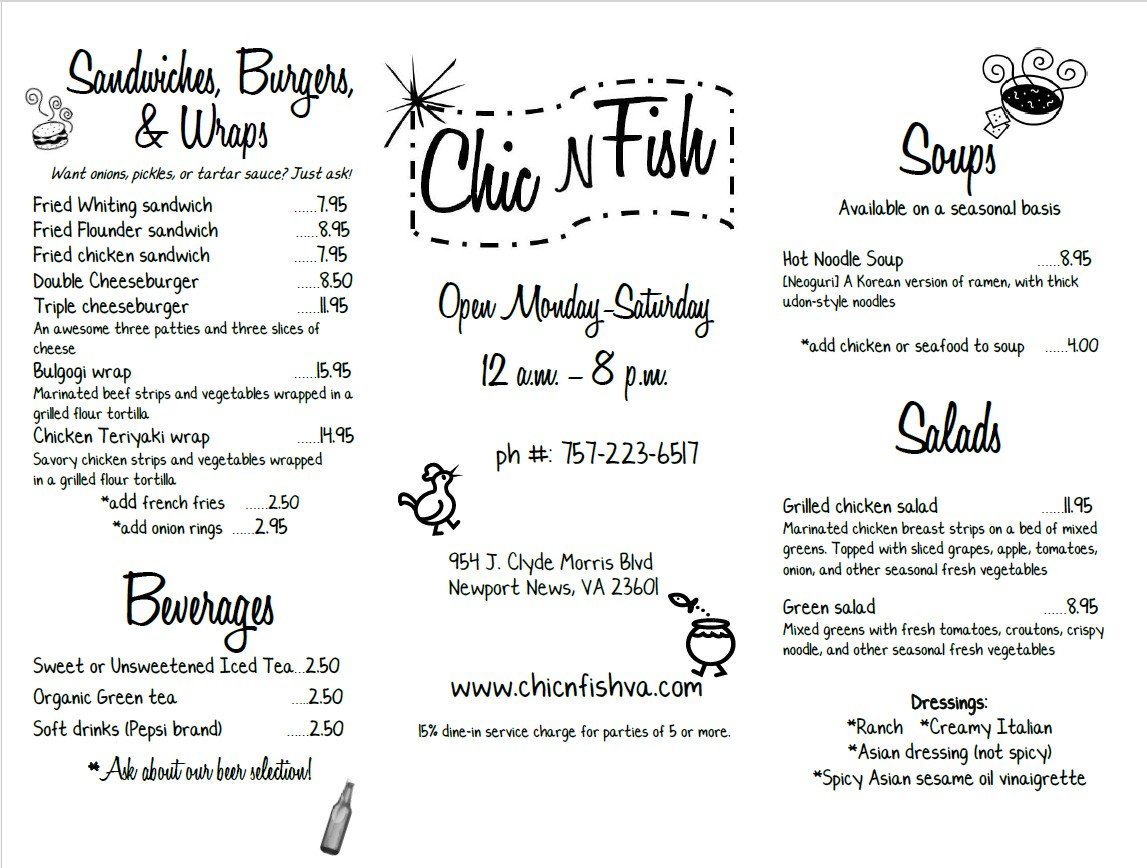 Sandwiches, Burgers,
& Wraps
Want onions, pickles, or tartar sauce? Just ask!
Fried Whiting sandwich ......7.95
Fried Flounder sandwich ......8.95
Fried chicken sandwich ......7.95
Double Cheeseburger ......8.50
Triple cheeseburger ......11.95
An awesome three patties and three slices of
cheese
Bulgogi wrap ......15.95
Marinated beef strips and vegetables wrapped in a
grilled flour tortilla
Chicken Teriyaki wrap ......14.95
Savory chicken strips and vegetables wrapped
in a grilled flour tortilla
*add french fries ......2.50
*add onion rings ......2.95
Beverages
Sweet or Unsweetened Iced Tea...2.50
Organic Green tea .....2.50
Soft drinks (Pepsi brand) ......2.50
*Ask about our beer selection!
Chic N Fish
Open Monday-Saturday
12 a.m. – 8 p.m.
ph #: 757-223-6517
954 J. Clyde Morris Blvd
Newport News, VA 23601
www.chicnfishva.com
15% dine-in service charge for parties of 5 or more.
Soups
Available on a seasonal basis
Hot Noodle Soup ......8.95
[Neoguri] A Korean version of ramen, with thick
udon-style noodles
*add chicken or seafood to soup ......4.00
Salads
Grilled chicken salad ......11.95
Marinated chicken breast strips on a bed of mixed
greens. Topped with sliced grapes, apple, tomatoes,
onion, and other seasonal fresh vegetables
Green salad ......8.95
Mixed greens with fresh tomatoes, croutons, crispy
noodle, and other seasonal fresh vegetables
Dressings:
*Ranch *Creamy Italian
*Asian dressing (not spicy)
*Spicy Asian sesame oil vinaigrette